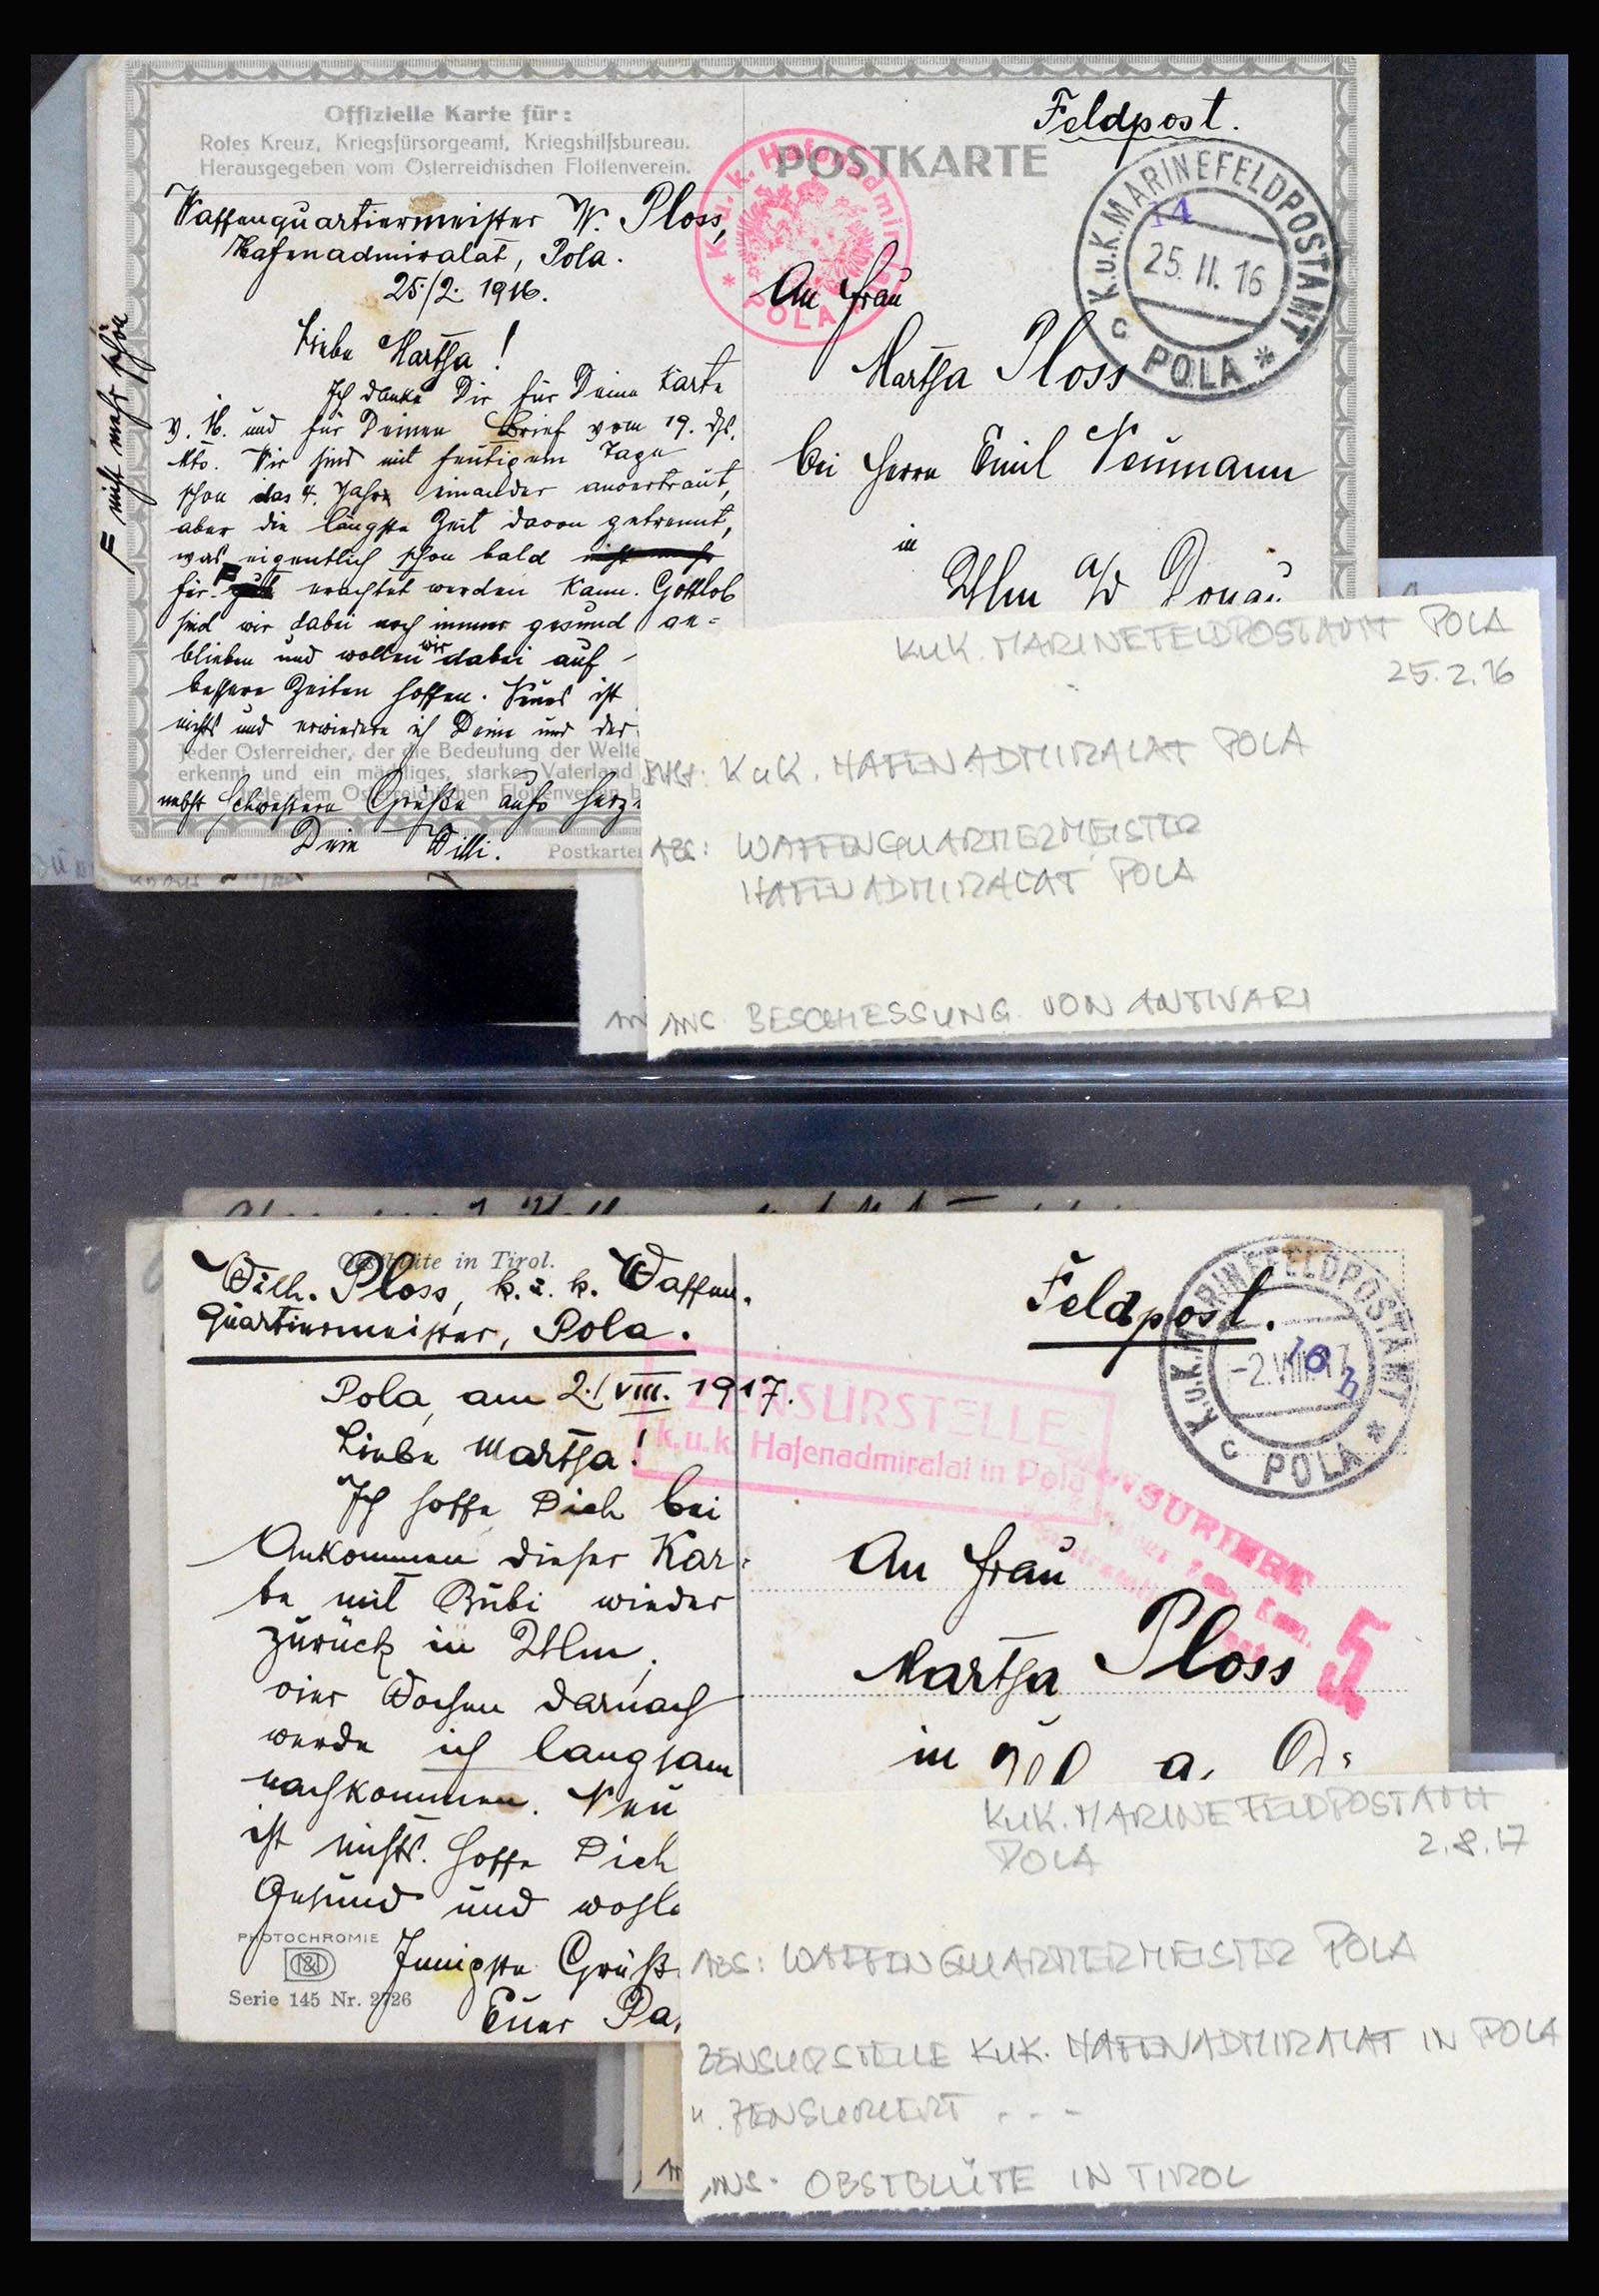 Offizielle Karte für:
Rotes Kreuz, Kriegsfürsorgeamt, Kriegshilfsbureau.
Herausgegeben vom Österreichischen Flottenverein.
Waffenquartiermeister W. Ploss,
Hafenadmiralat, Pola.
25./2. 1916.
Liebe Martha!
Ich danke Dir für Deine Karte
v. 16. und für Deinen Brief vom 19. ds.
Mts. Wir sind mit heutigem Tage
schon das 4. Jahr einander anvertraut,
aber die längste Zeit davon getrennt,
was eigentlich schon bald
für F erachtet werden kann. Gottlob
sind wir dabei noch immer gesund ge=
blieben und wollen wir dabei auf
bessere Zeiten hoffen. Neues ist
nichts und erwiedere ich Deine und der
Jeder Österreicher, der die Bedeutung der Welt
erkennt und ein mächtiges, starkes Vaterland
dem Österreichischen Flottenverein b
nebst Schwestern Grüße aufs herz
Dein Willi.
Postkarte
F nicht mehr schön
Feldpost.
POSTKARTE
K.u.k. Hafenadmiral
POLA
K.u.K. MARINEFELDPOSTAMT
14
25. II. 16
c POLA *
An Frau
Martha Ploss
bei Herrn Emil Neumann
in
Ulm a/d Donau
KuK. MARINEFELDPOSTAMT POLA
25.2.16
KuK. HAFENADMIRALAT POLA
ABS: WAFFENQUARTIERMEISTER
HAFENADMIRALAT POLA
ANS BESCHIESSUNG VON ANTIVARI
Obstblüte in Tirol.
Wilh. Ploss, k. u. k. Waffen-
quartiermeister, Pola.
Pola, am 2./VIII. 1917.
Liebe Martha!
Ich hoffe Dich bei
Ankommen dieser Kar=
te mit Bubi wieder
zurück in Ulm,
vier Wochen darnach
werde ich langsam
nachkommen. Neu
ist nichts. Hoffe Dich
Gesund und wohl
Innigste Grüß
Euer Pa
PHOTOCHROMIE
Serie 145 Nr. 2726
Feldpost.
K.u.K. MARINEFELDPOSTAMT
-2.VIII.17
c POLA *
ZENSURSTELLE
k.u.k. Hafenadmiralat in Pola
ZENSURIERT
5
An Frau
Martha Ploss
in
KuK. MARINEFELDPOSTAMT
POLA
2.8.17
ABS: WAFFENQUARTIERMEISTER POLA
ZENSURSTELLE KuK. HAFENADMIRALAT IN POLA
u. ZENSURIERT . . -
ANS- OBSTBLÜTE IN TIROL